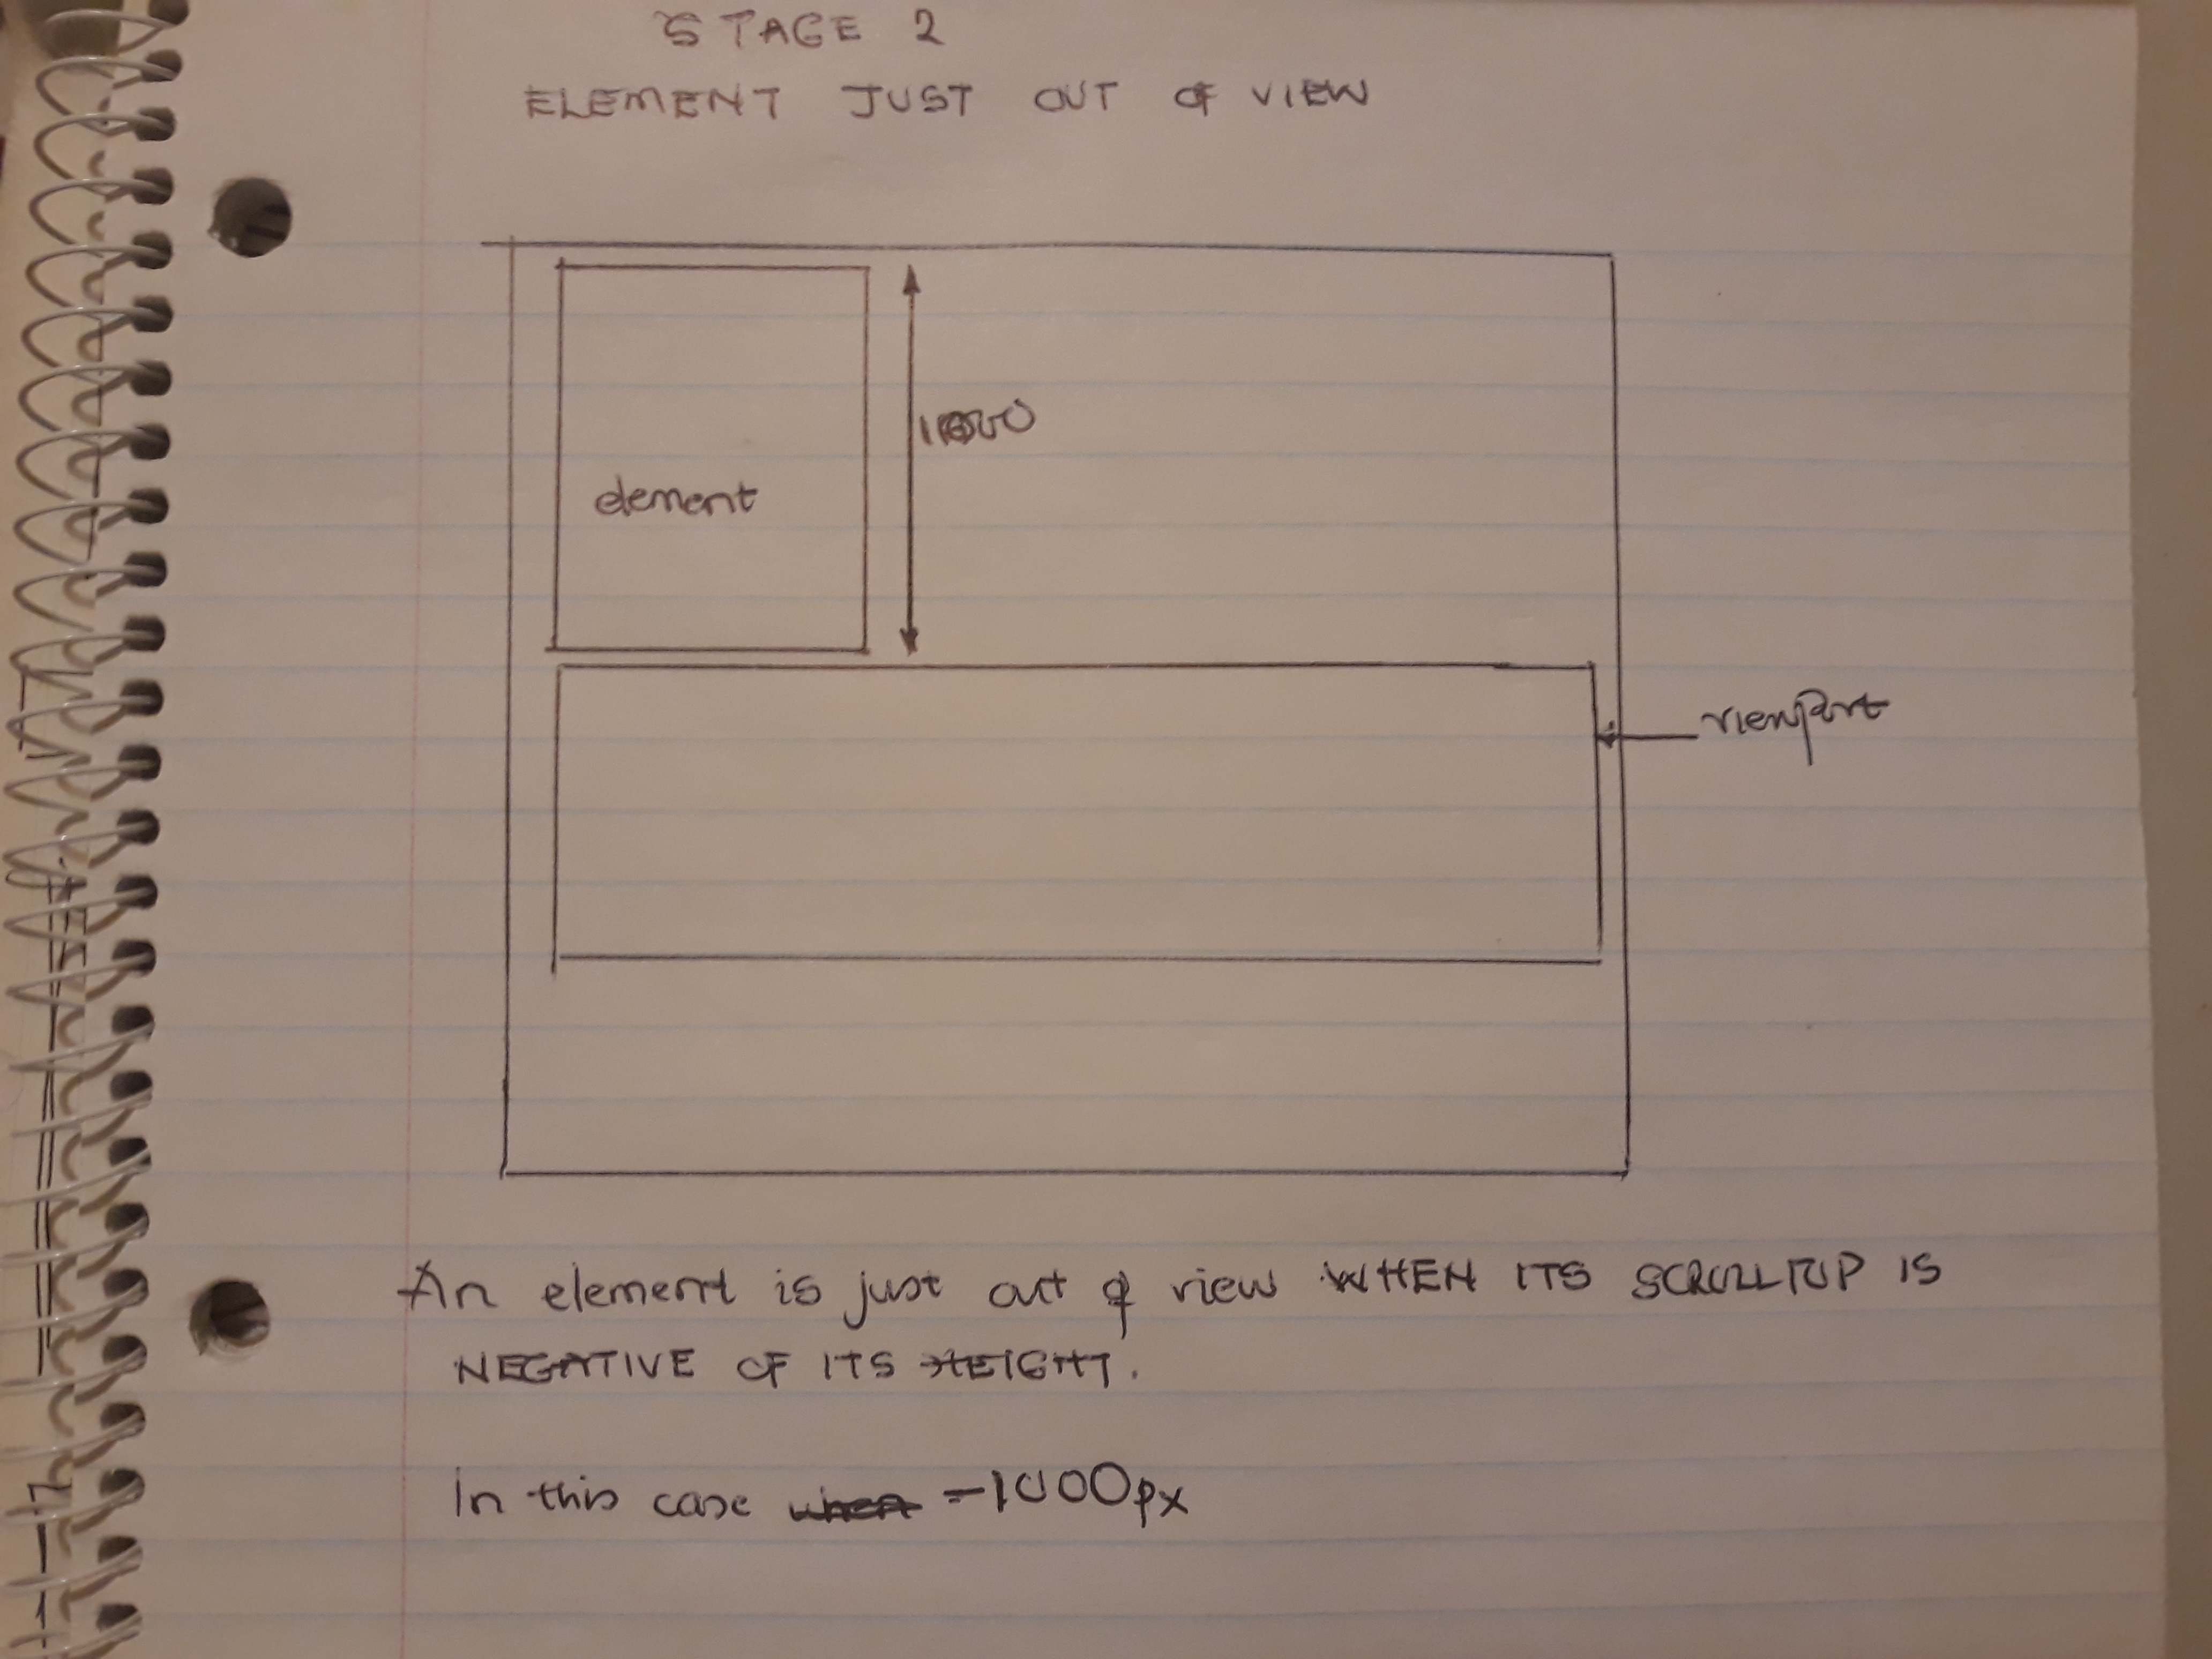 STAGE 2
ELEMENT JUST OUT OF VIEW
1000
element
viewport
An element is just out of view WHEN ITS SCROLLTOP IS
NEGATIVE OF ITS HEIGHT.
In this case when -1000px